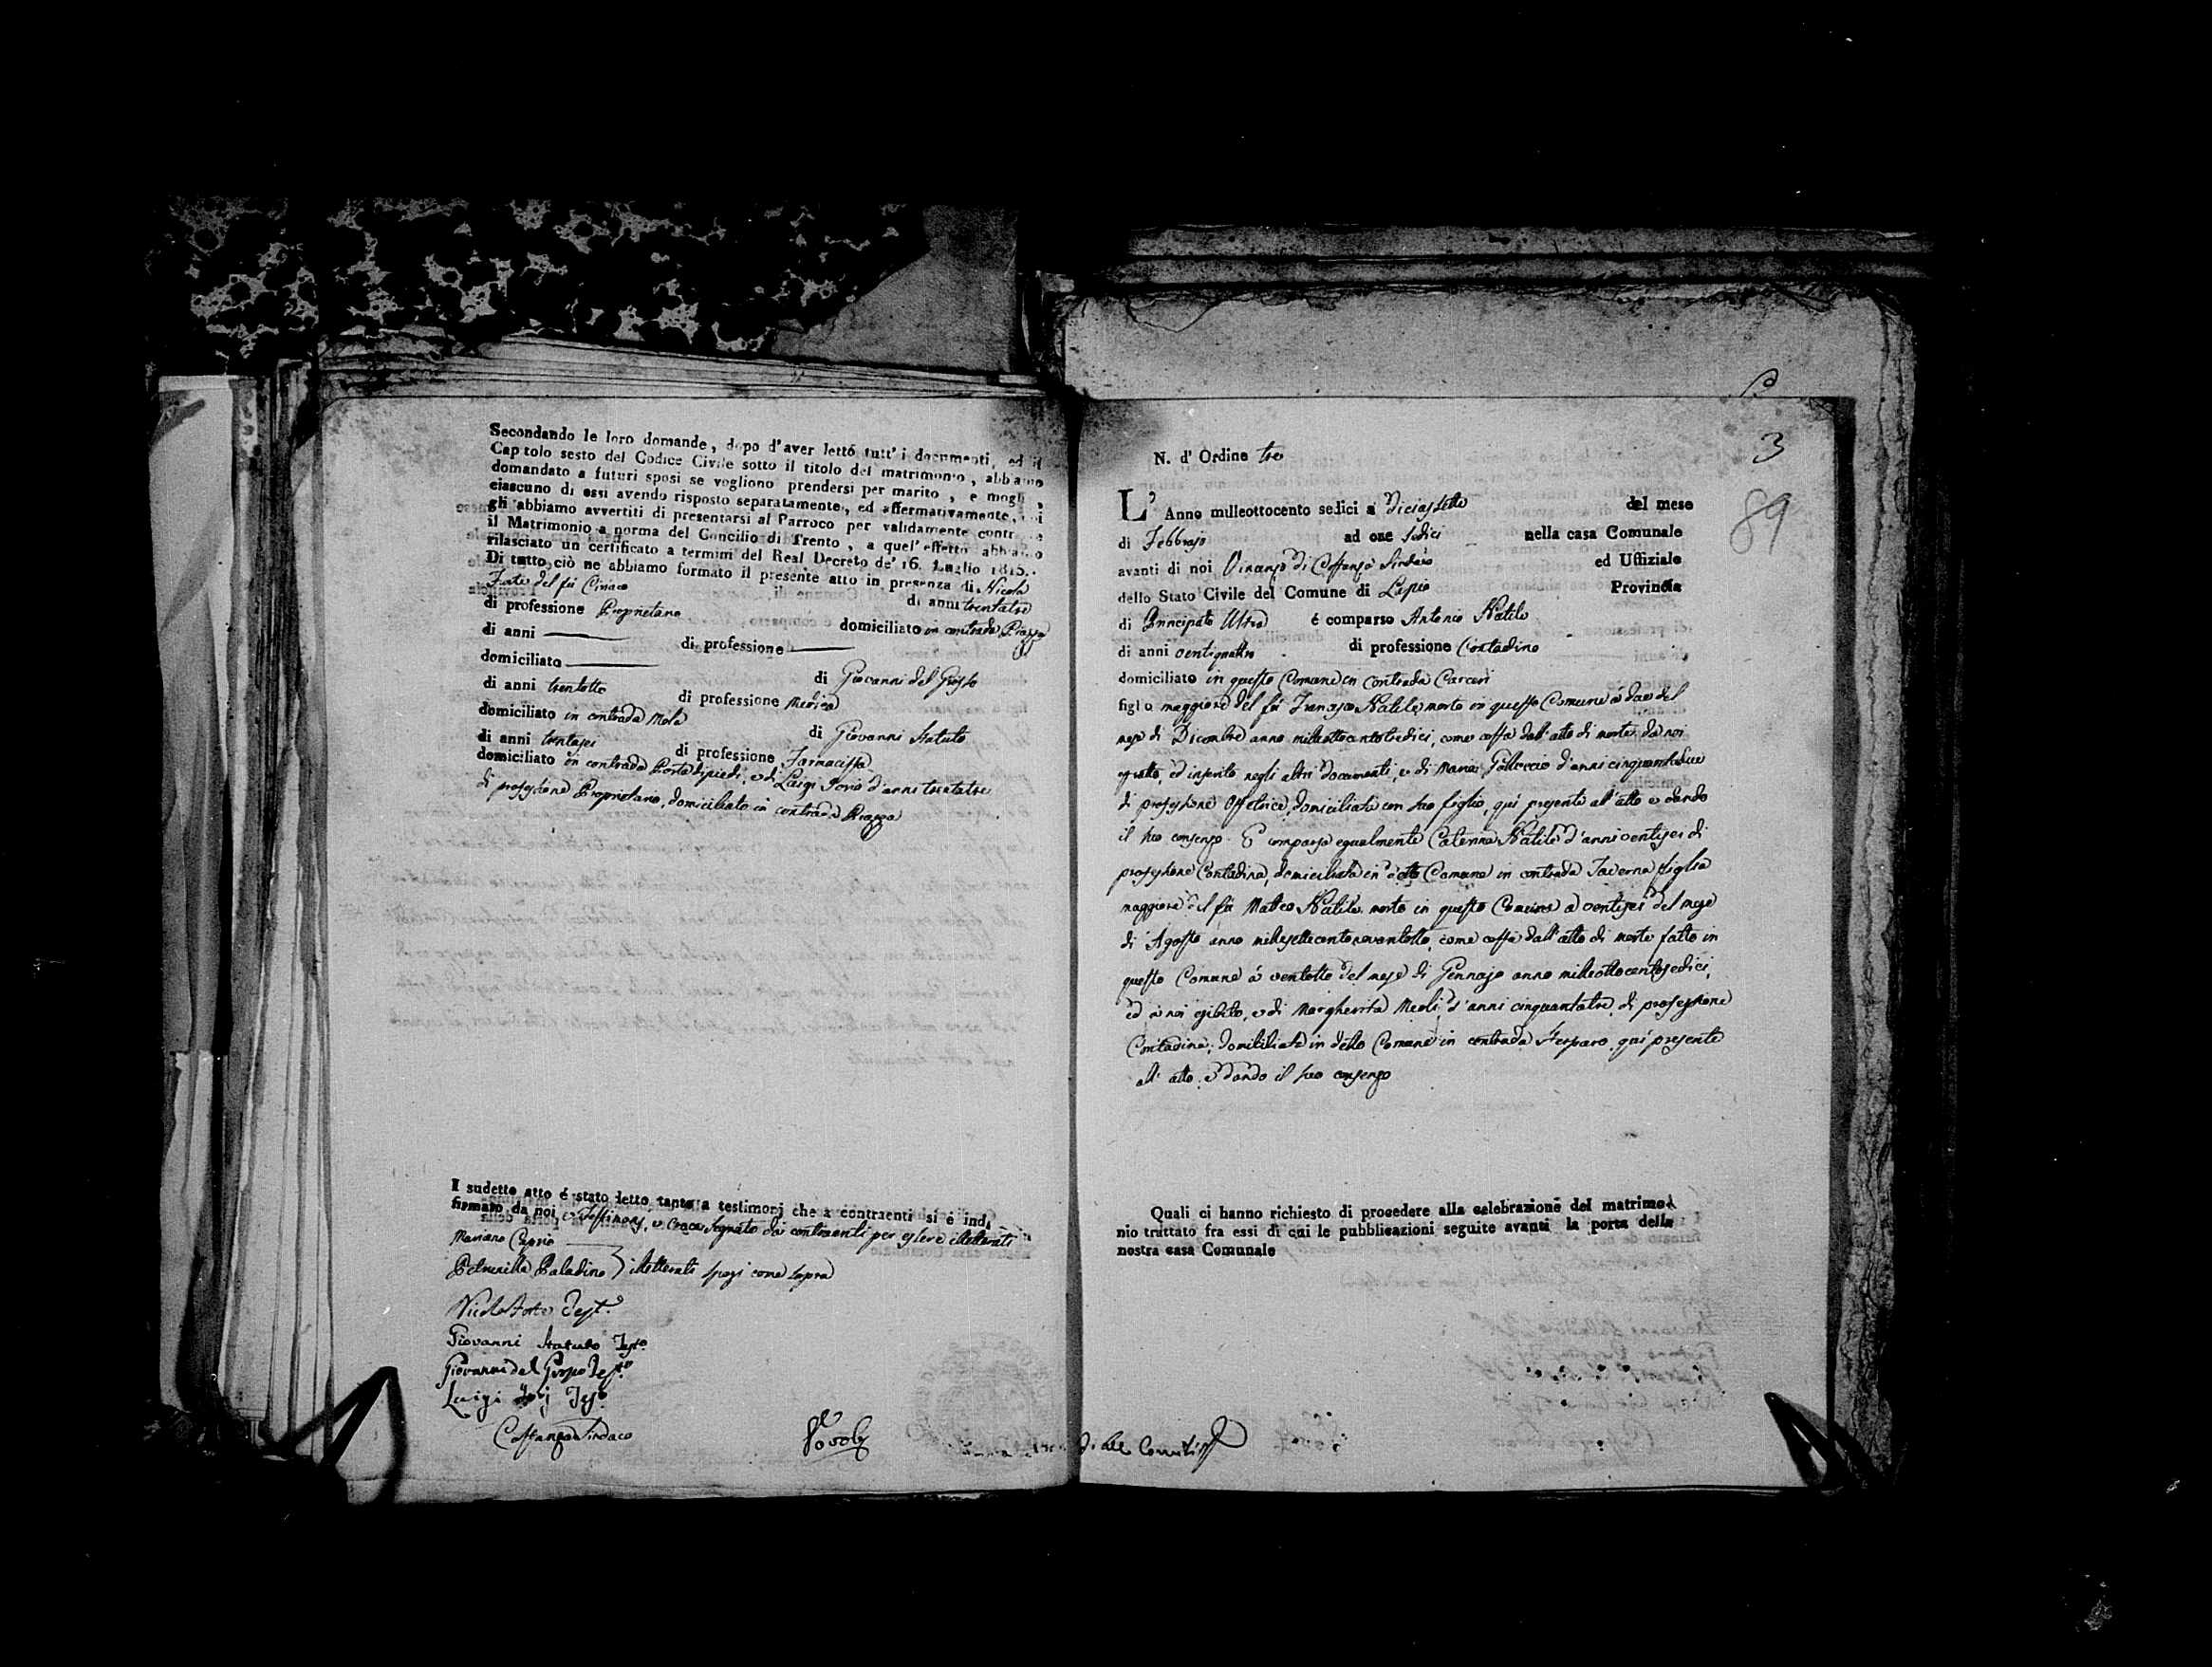 Secondando le loro domande, dopo d'aver letto tutt' i documenti, ed il
Capitolo sesto del Codice Civile sotto il titolo del matrimonio, abbiamo
domandato a futuri sposi se vogliono prendersi per marito, e mogli,
ciascuno di essi avendo risposto separatamente, ed affermativamente,
gli abbiamo avvertiti di presentarsi al Parroco per validamente contr
il Matrimonio a norma del Concilio di Trento, a quel' effetto abbiamo
rilasciato un certificato a termini del Real Decreto de' 16. Luglio 1815.
Di tutto ciò ne abbiamo formato il presente atto in presenza di Nicola
Forte del fù Ciriaco di anni trentatre
di professione Proprietario domiciliato in contrada Piazza
di anni di professione
domiciliato
di Giovanni del Grosso
di anni trentotto di professione Medico
domiciliato in contrada Mola
di Giovanni Statuto
di anni trentasei di professione Farmacista
domiciliato in contrada Portadipiedi, e di Luigi Iorio d'anni trentatre
di professione Proprietario, domiciliato in contrada Piazza
I sudetto atto é stato letto tanto a testimonj che a contraenti si é indi
firmato da noi e Testimonj, e Croce Segnato dai contraenti per essere illetterati
Mariano Caprio
Petronilla Paladino } illetterati sposi come sopra
Nicola Forte Test.e
Giovanni Statuto Test.e
Giovanni del Grosso Test.e
Luigi Test.e
Costanzo Sindaco
N. d' Ordine tre
3
89
L' Anno milleottocento sedici a' diciassette del mese
di Febbrajo ad ore sedici nella casa Comunale
avanti di noi Oronzo di Costanzo Sindaco ed Uffiziale
dello Stato Civile del Comune di Lapio Provincia
di Principato Ultra é comparso Antonio Natile
di anni ventiquattro di professione Contadino
domiciliato in questo Comune in contrada Carceri
figlio maggiore del fù Francesco Natile morto in questo Comune à due del
mese di Dicembre anno milleottocentotredici, come costa dall'atto di morte da noi
esistito, ed inserito negli altri documenti, e di Maria d'anni cinquantadue
di professione Ostetrice, domiciliata con suo figlio, quì presente all'atto e dando
il suo consenso. E' comparsa egualmente Caterina Natile d'anni ventisei di
professione Contadina, domiciliata in detto Comune in contrada Taverna figlia
maggiore del fù Matteo Natile morto in questo Comune a ventisei del mese
di Agosto anno millesettecentonovantotto, come costa dall'atto di morte fatto in
questo Comune à ventotto del mese di Gennajo anno milleottocentosedici,
ed à noi esibito, e di Margherita Meoli d'anni cinquantatre, di professione
Contadina, domiciliata in detto Comune in contrada quì presente
all' atto, e dando il suo consenso
Quali ci hanno richiesto di procedere alla celebrazione del matrimo-
nio trattato fra essi di cui le pubblicazioni seguite avanti la porta della
nostra casa Comunale